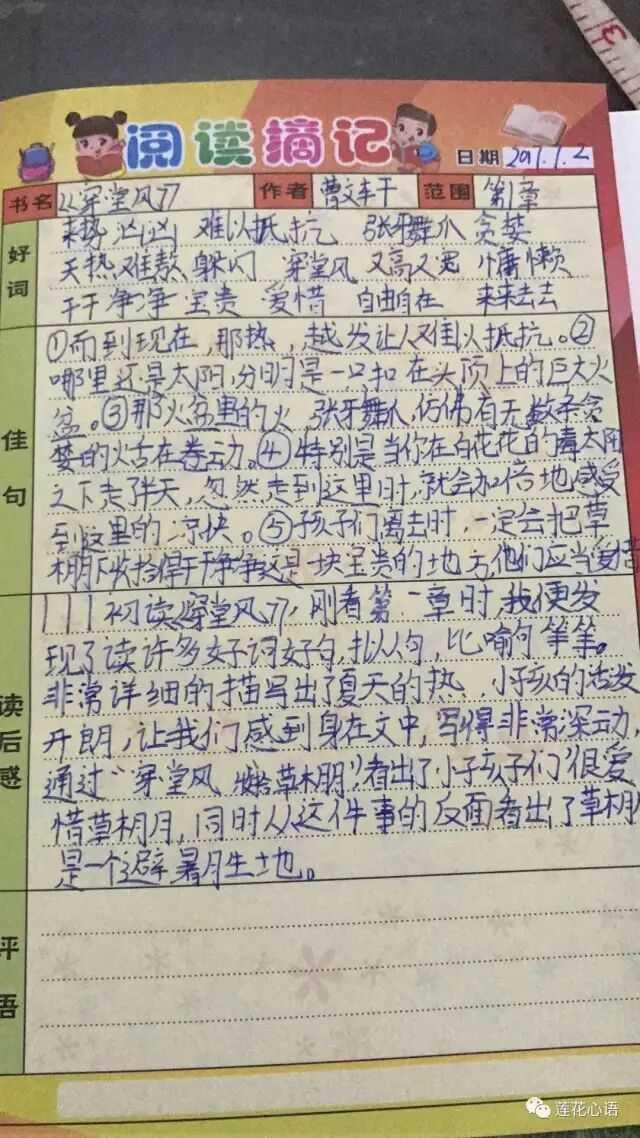 阅读摘记
日期 2017.7.2
书名 《穿堂风》 作者 曹文轩 范围 第1章
好词
来势汹汹 难以抵抗 张牙舞爪 贪婪
天热难熬 躲闪 穿堂风 又高又宽 慵懒
干干净净 宝贵 爱惜 自由自在 来来去去
佳句
①而到现在,那热,越发让人难以抵抗。②
哪里还是太阳,分明是一只扣在头顶上的巨大火
盆。③那火盆里的火,张牙舞爪,仿佛有无数条贪
婪的火舌在卷动。④特别是当你在白花花的毒太阳
之下走了半天,忽然走到这里时,就会加倍地感受
到这里的凉快。⑤孩子们离去时,一定会把草
棚下收拾得干干净净这是一块宝贵的地方,他们应当爱惜
读后感
初读《穿堂风》,刚看第一章时,我便发
现了读许多好词好句,拟人句,比喻句等等。
非常详细的描写出了夏天的热,小孩的活发
开朗,让我们感到身在文中,写得非常深动,
通过“穿堂风 草棚”,看出了小孩子们很爱
惜草棚,同时从这件事的反面看出了草棚
是一个避暑胜地。
评语
莲花心语
3